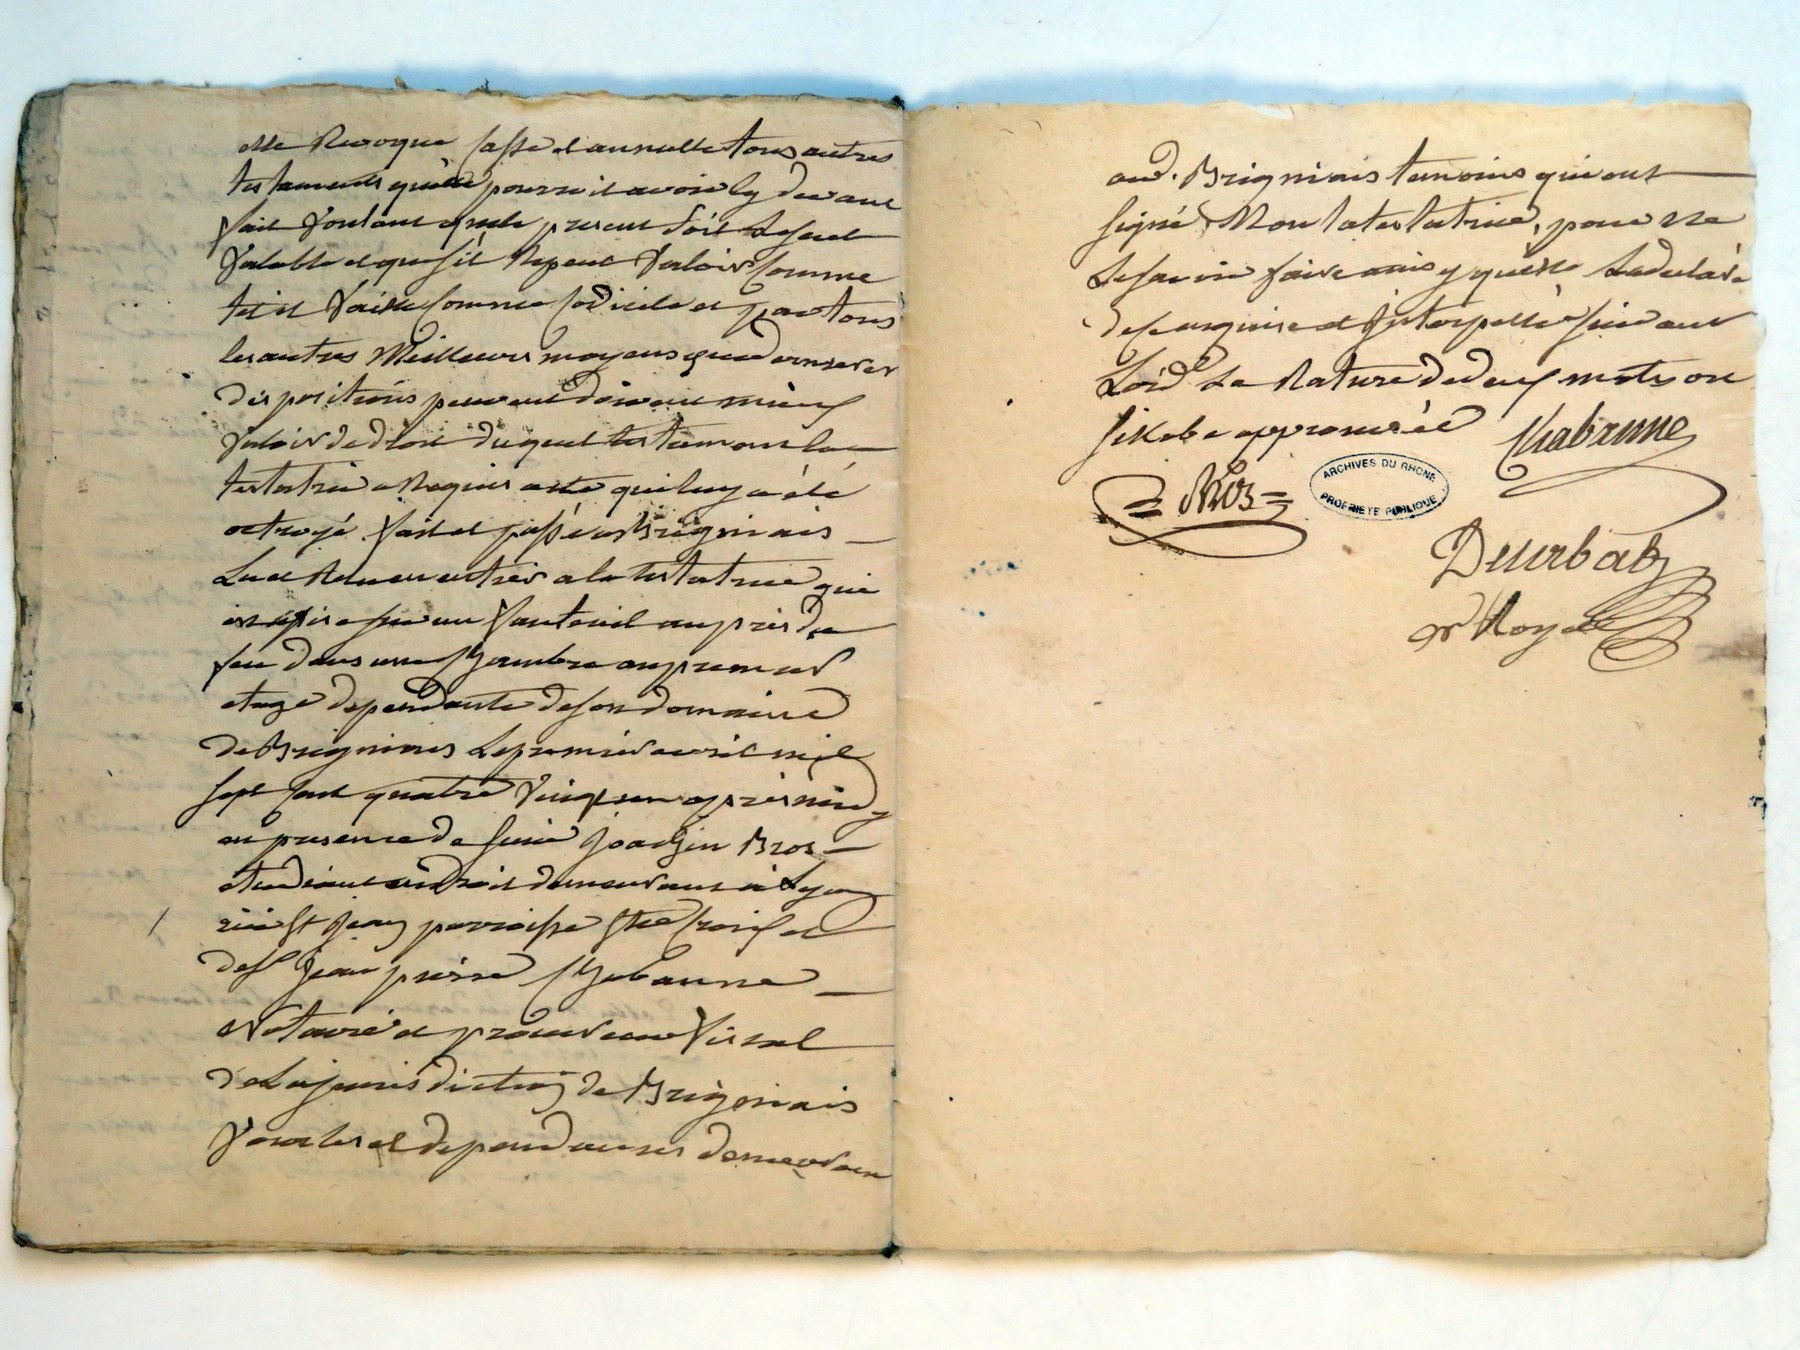 elle Revoque Casse et annulle tous autres
testaments quelle pourroit avoir cy devant
fait voulant que le present soit le seul
valable et que s'il ne peut valoir comme
tel il vaille comme codicile et par tous
les autres Meilleurs moyens que dernieres
dispositions peuvent doivent mieux
valoir de droit duquel testament la
testatrice a Requis acte qui luy a été
octroyé fait et passé au Brignais
Lu et Relu en entier a la testatrice qui
assise sur un fauteuil auprès du
feu dans une Chambre au premier
etage dependante de son domaine
de Brignais le premier avril mil
sept Cent quatre vingt un après midy
en presence de sieur Joachin Bros
etudiant en droit demeurant à Lyon
rue St Jean parroisse Ste Croix et
de Sr Jean pierre Chabanne
Notaire et procureur fiscal
de la jurisdiction de Brignais
Vourles et dependances demeurant
aud. Brignais temoins qui ont
signé Non la testatrice, pour ne
le scavoir faire ainsy quelle la declaré
de ce enquise et Interpellée suivant
L'ord. la Rature de deux mots on
Sikebe approuvée Chabanne
Bros
ARCHIVES DU RHONE
PROPRIETE PUBLIQUE
Durbat